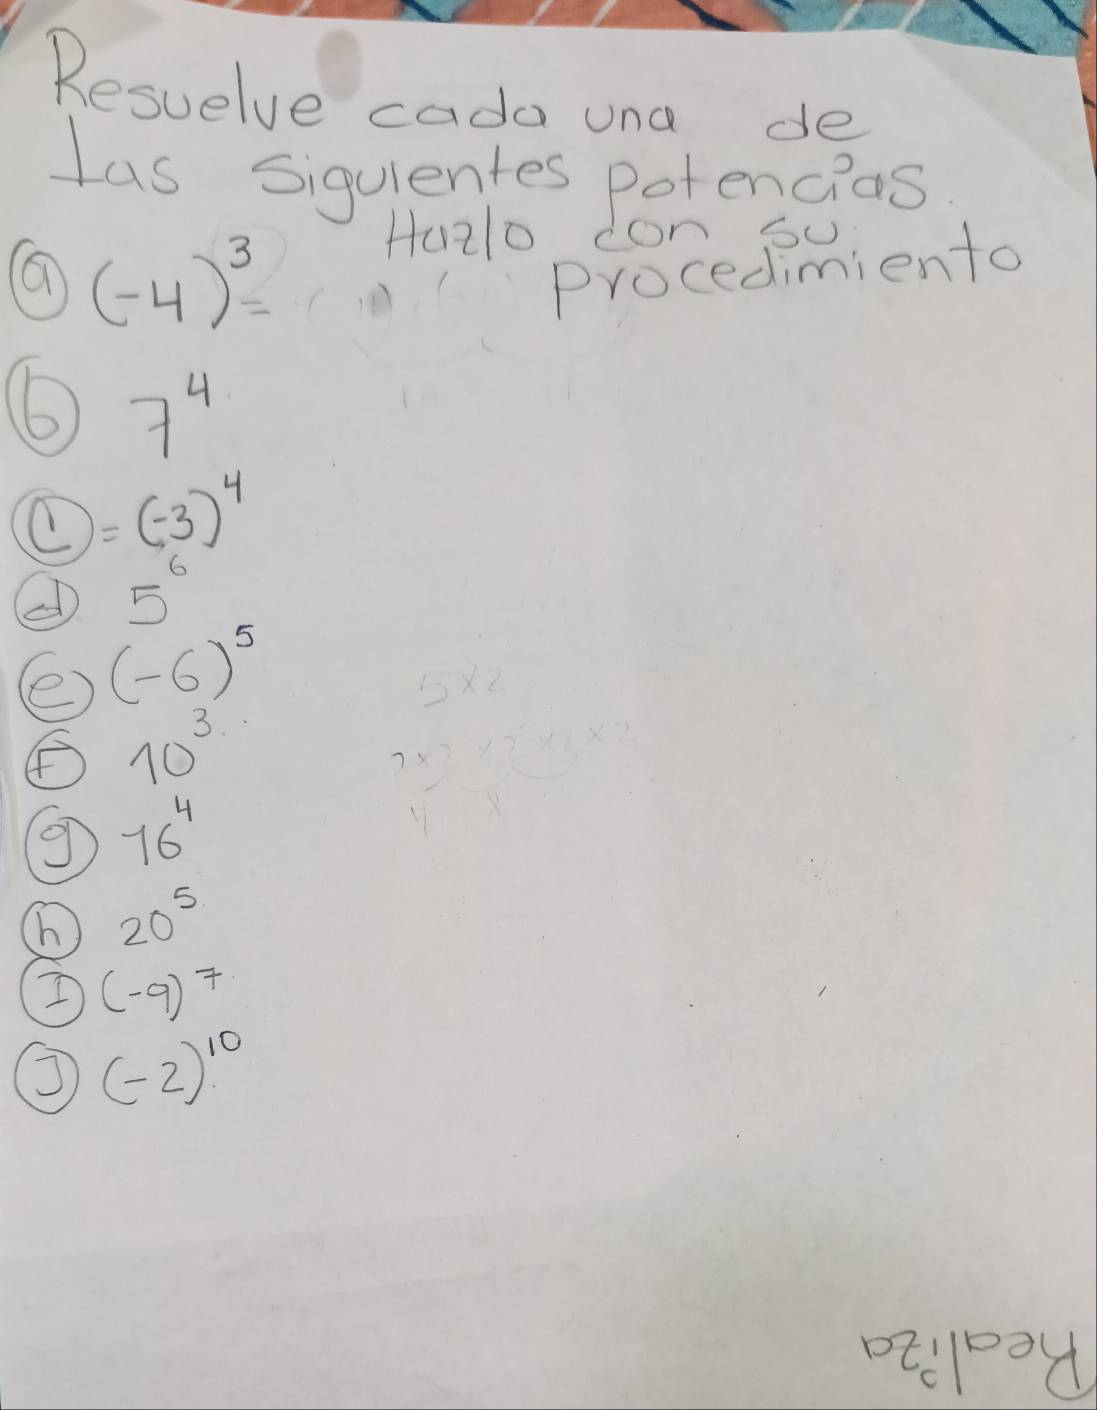 Resuelve cada una de
las siguientes potencias.
Hazlo con su
procedimiento
a (-4)³=
b 7⁴
c = (-3)⁴
d 5⁶
e (-6)⁵
f 10³
g 16⁴
h 20⁵
I (-9)⁷
J (-2)¹⁰
5x2
2x2x2x2x2
4 8
Realiza